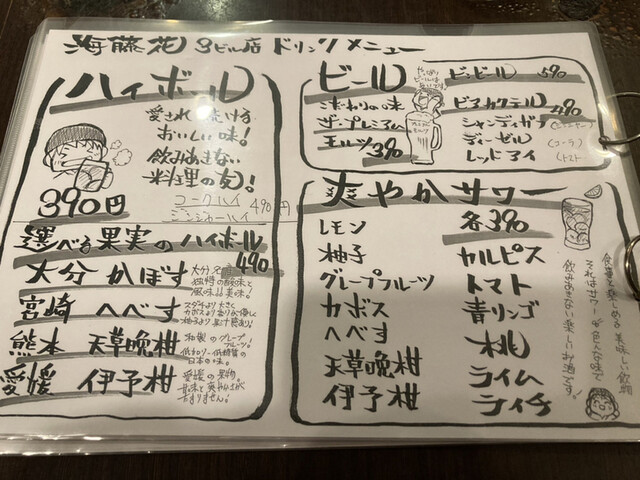 海藤花 3ビル店 ドリンクメニュー
ハイボール
愛され続ける
おいしい味!
飲みあきない
料理の友!
390円
コークハイ 490円
ジンジャーハイ
選べる果実のハイボール
490
大分 かぼす
独特の酸味と
風味は美味!
宮崎 へべす
スダチより大きく
カボスより香りが優しく
柚子より果汁有り!
熊本 天草晩柑
和製のグレープ
フルーツ!
日本の味。
愛媛 伊予柑
愛媛の果物
甘味と爽やかさが
たまりません!
ビール
こだわりの味
ザ・プレミアム
モルツ 390
ビンビール 590
ビアカクテル 490
シャンディガフ
ディーゼル (コーラ)
レッドアイ (トマト)
爽やかサワー
各390
レモン
柚子
グレープフルーツ
カボス
へべす
天草晩柑
伊予柑
カルピス
トマト
青リンゴ
桃
ライム
ライチ
食事を楽しめる美味しい飲物
それはサワー!色んな味で
飲みあきない楽しいお酒です!